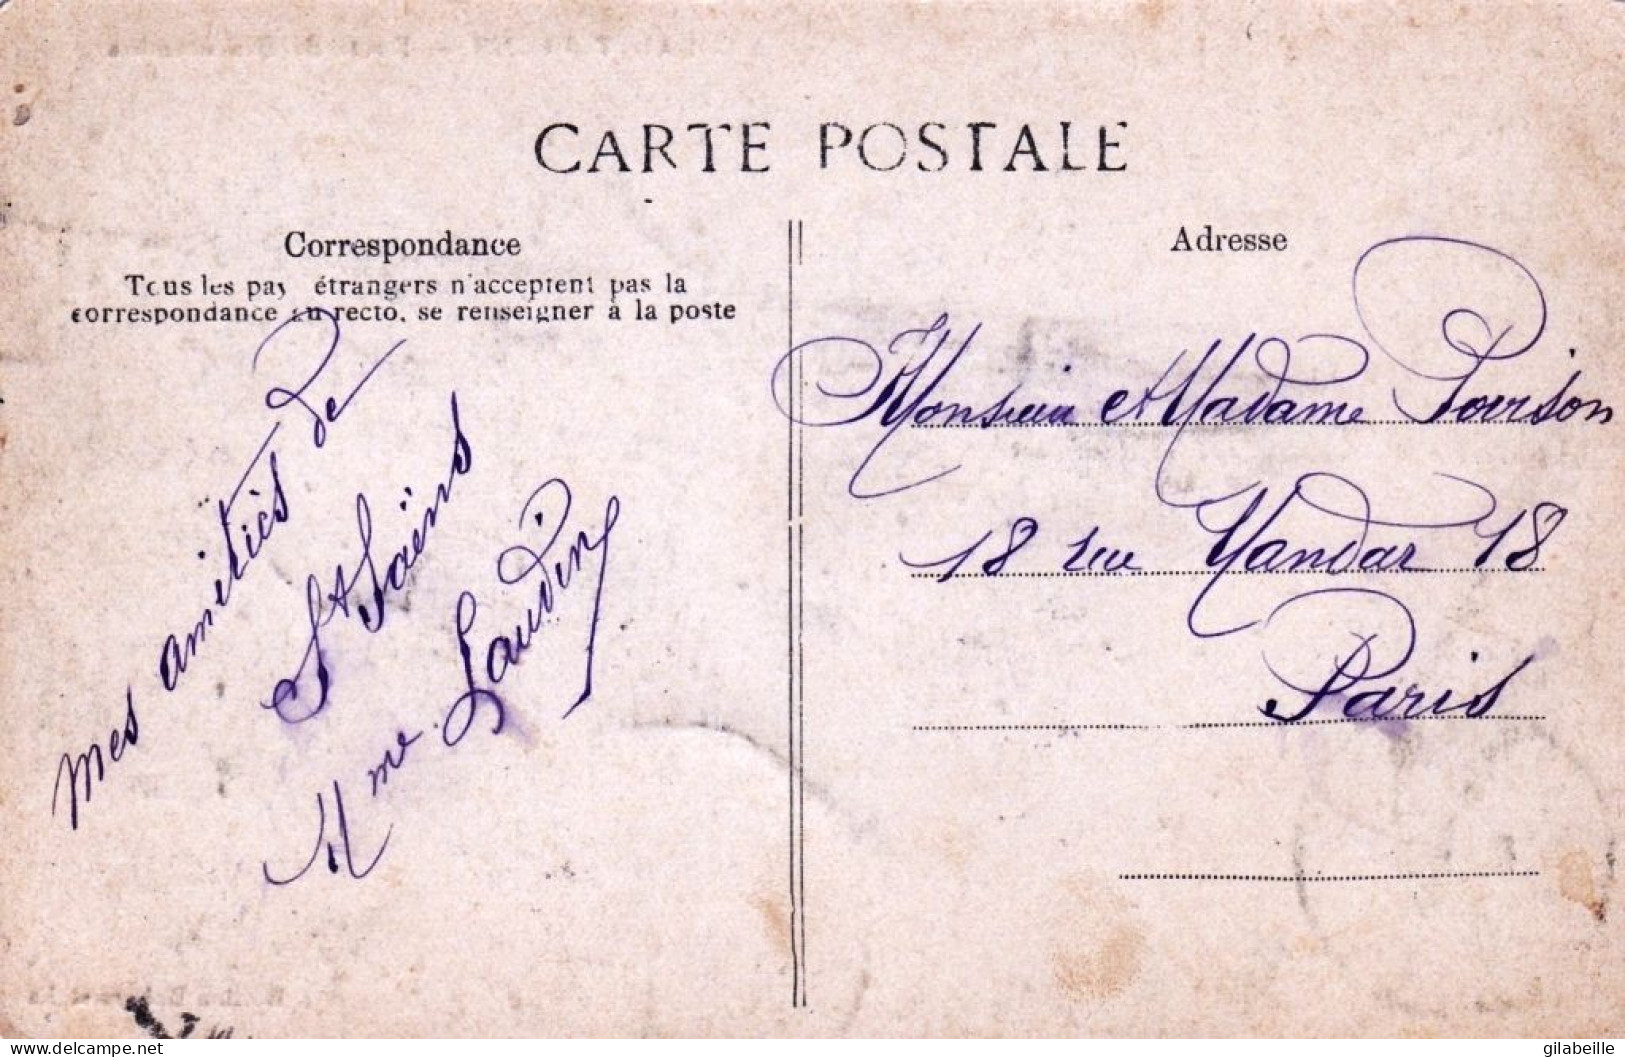 CARTE POSTALE
Correspondance
Tous les pays étrangers n'acceptent pas la
correspondance au recto, se renseigner à la poste
Mes amitiés de
St Saëns
Mme Laudin
Adresse
Monsieur et Madame Poirson
18 rue Mandar 18
Paris
gilabeille